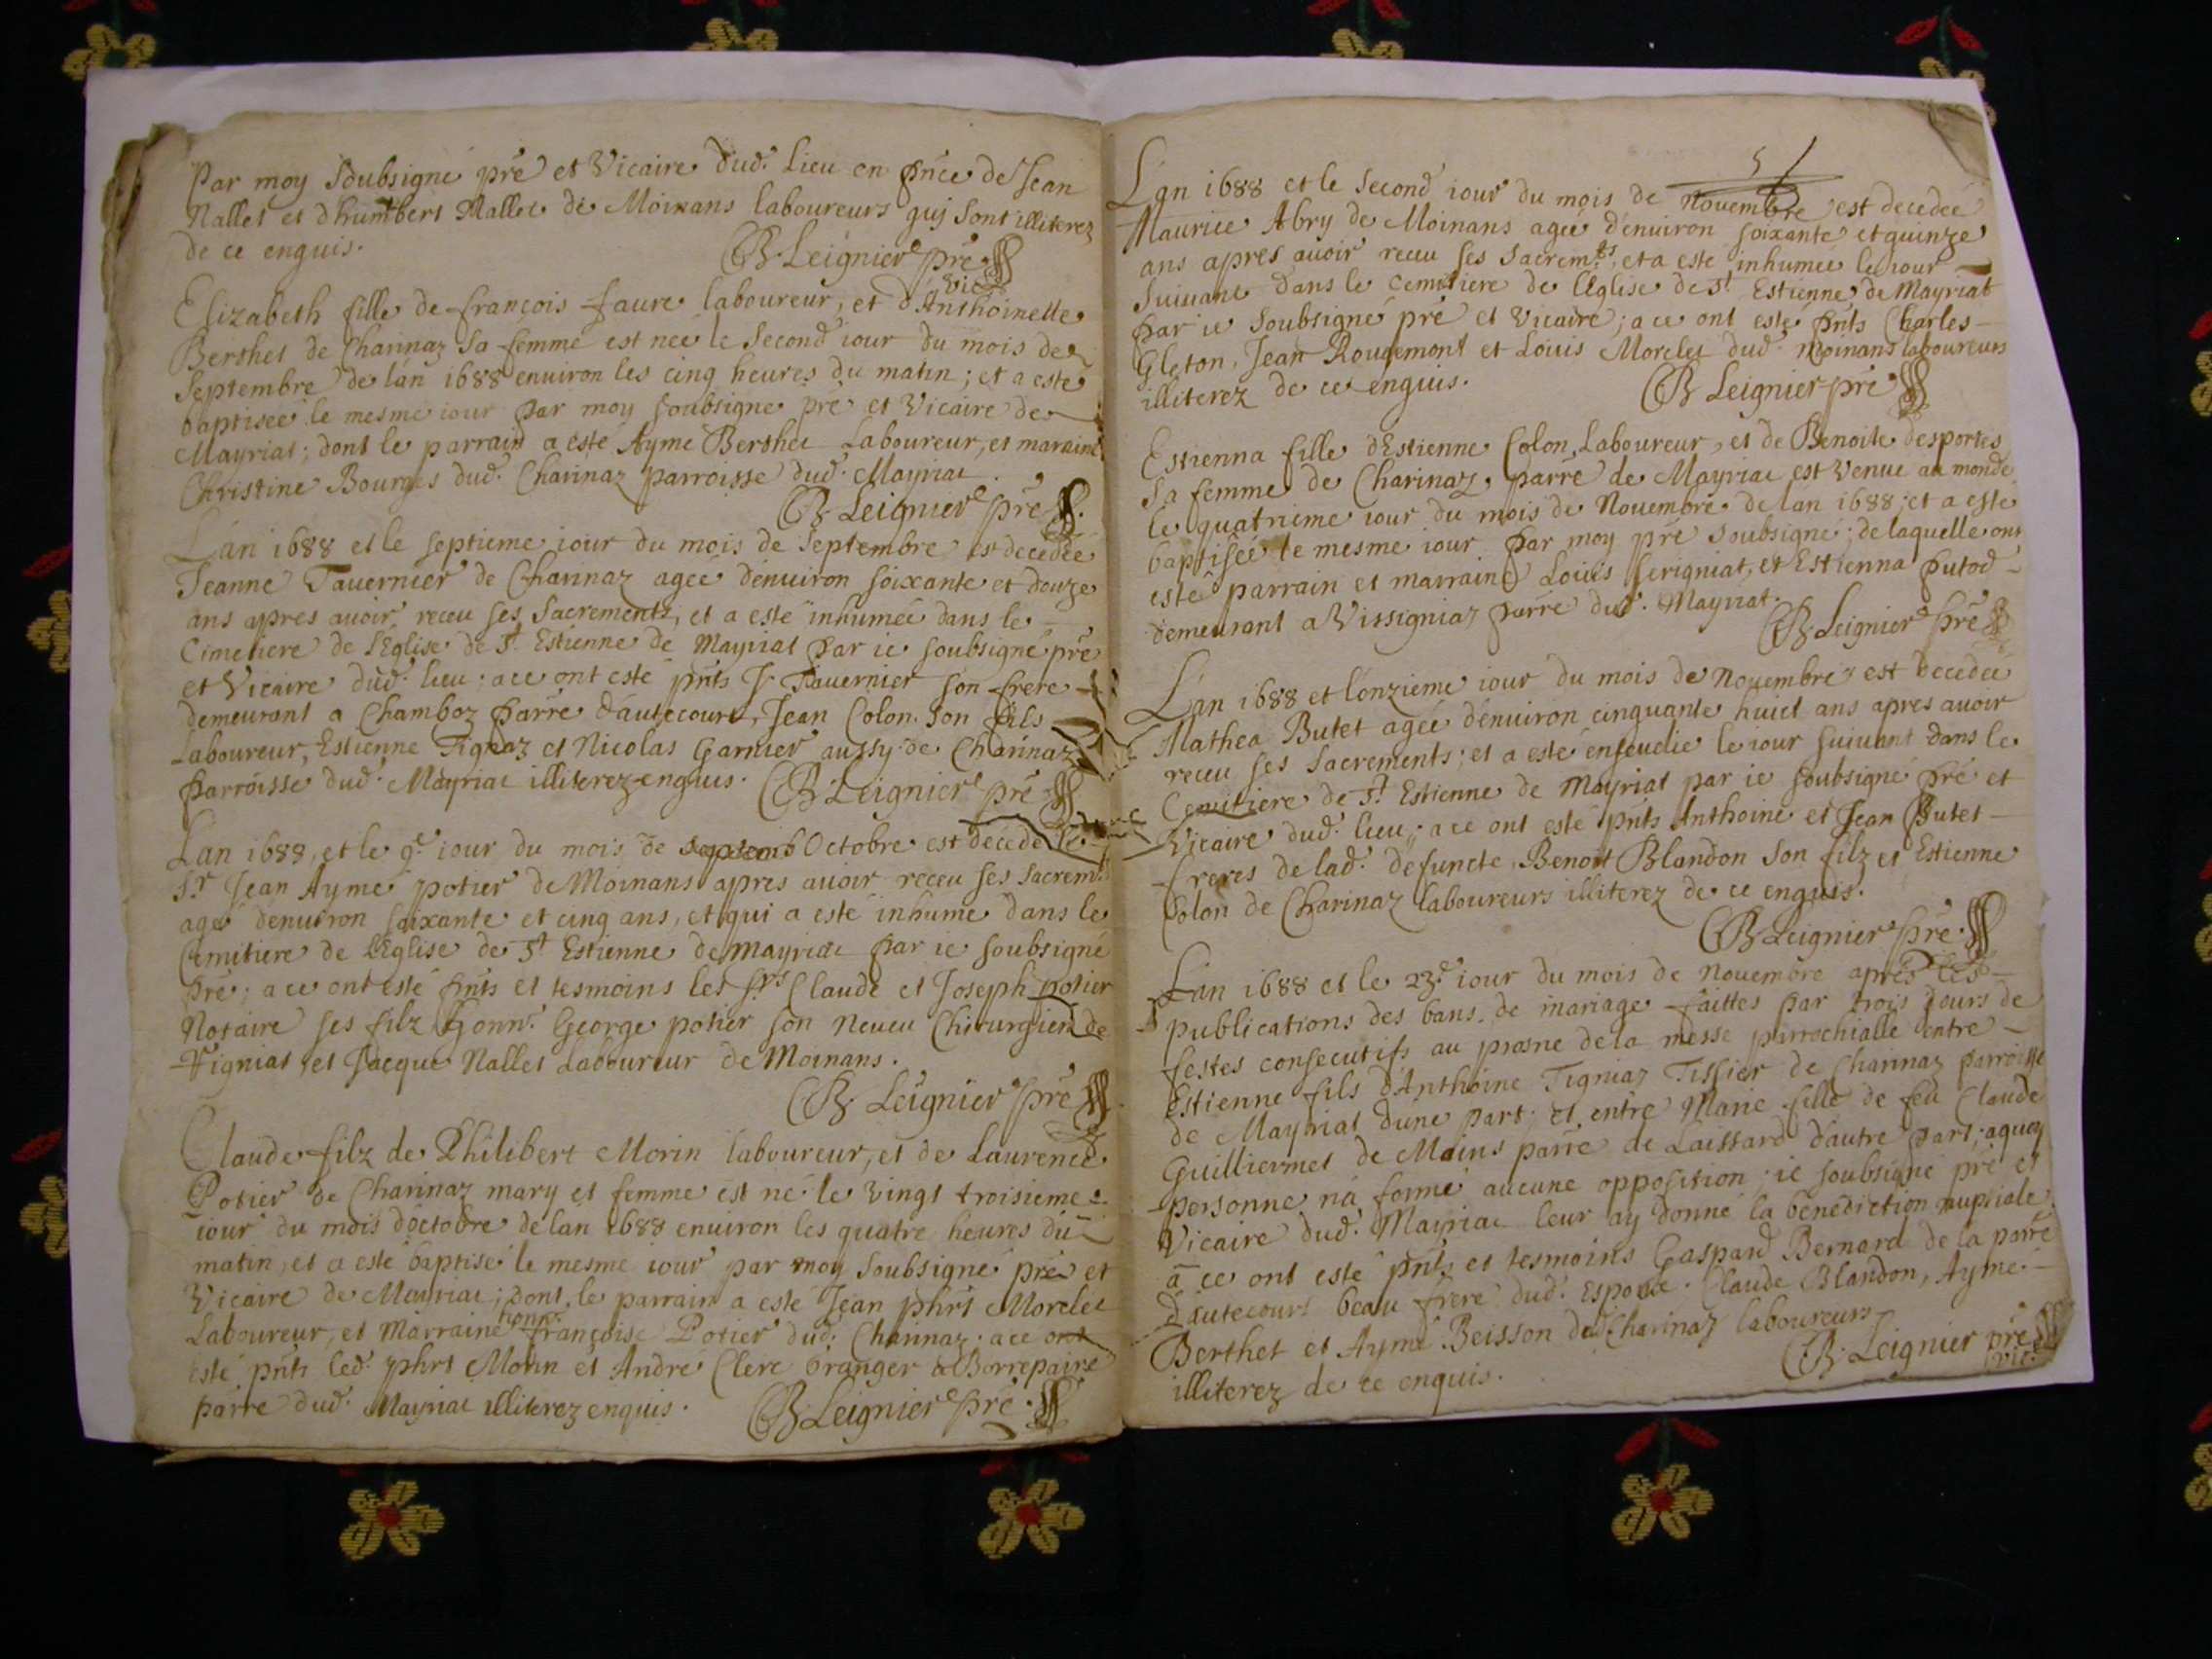 Par moy soubsigné pre et Vicaire dud. Lieu en pnce de Jean
Nallet et d'humbert Mallet de Moinans laboureurs quj sont illiterez
de ce enquis.
B. Leignier pre
vic
Elizabeth fille de françois faure laboureur, et d'Anthoinette
Berthet de Charinaz sa femme est neé le second iour du mois de
Septembre de lan 1688 enuiron les cinq heures du matin; et a esté
baptiseé le mesme iour par moy soubsigné pre et Vicaire de
Mayriat; dont le parrain a esté Ayme Berthet Laboureur, et maraine
Christine Bourges dud. Charinaz parroisse dud. Mayriat.
B. Leignier pre
L'an 1688 et le septieme iour du mois de Septembre est decedeé
Jeanne Tauernier de Charinaz ageé denuiron soixante et douze
ans apres auoir receu ses Sacrements, et a esté inhumeé dans le
Cimetiere de l'Eglise de St Estienne de Mayriat par ie soubsigné pre
et Vicaire dud. lieu; a ce ont esté pnts J Tauernier son frere
demeurant a Chamboz parre d'autecourt, Jean Colon son fils
Laboureur, Estienne Tignaz et Nicolas Garnier aussy de Charinaz
parroisse dud. Mayriat illiterez enquis. B. Leignier pre
L'an 1688, et le 9e iour du mois de septemb Octobre est decedé le
Sr Jean Aymé potier de Moinans apres auoir receu ses Sacremts
agé denuiron soixante et cinq ans, et qui a esté inhumé dans le
Cimitiere de l'Eglise de St Estienne de Mayriat par ie soubsigné
pre; a ce ont esté pnts et tesmoins les Srs Claude et Joseph potier
Notaire ses filz honn. George potier son neueu Chirurgien de
Tigniat et Jacque Nallet Laboureur de Moinans.
B. Leignier pre
Claude filz de Philibert Morin laboureur, et de Laurence
Potier de Charinaz mary et femme est né le vingt troisieme
iour du mois d'octobre de lan 1688 enuiron les quatre heures du
matin, et a esté baptisé le mesme iour par moy soubsigné pre et
Vicaire de Mayriat; dont le parrain a esté Jean phrt Morelet
Laboureur, et Marraine honn. françoise Potier dud. Charinaz; a ce ont
esté pnts led. phrt Morin et André Clerc Granger a Borrepaire
parre dud. Mayriat illiterez enquis. B. Leignier pre
5
L'an 1688 et le second iour du mois de Nouembre est decedeé
Maurice Abry de Moinans ageé d'enuiron soixante et quinze
ans apres auoir receu ses sacremts, et a esté inhumeé le iour
suiuant dans le Cemitiere de l'Eglise de St Estienne de Mayriat
par ie soubsigné pre et Vicaire; a ce ont esté pnts Charles
Gleton, Jean Rougemont et Louis Morelet dud. Moinans laboureurs
illiterez de ce enquis. B. Leignier pre
Estienna fille d'Estienne Colon Laboureur, et de Benoite desportes
sa femme de Charinaz, parre de Mayriat est venue au monde
le quatrieme iour du mois de Nouembre de lan 1688; et a esté
baptiseé le mesme iour par moy pre soubsigné; de laquelle ont
esté parrain et marraine Louis serigniat, et Estienna putod
demeurant a Vissigniaz parre dud. Mayriat.
B. Leignier pre
L'an 1688 et l'onzieme iour du mois de Nouembre est decedeé
Mathea Butet ageé d'enuiron cinquante huict ans apres auoir
receu ses Sacrements; et a esté enseuelie le iour suiuant dans le
Cemitiere de St Estienne de Mayriat par ie soubsigné pre et
Vicaire dud. lieu; a ce ont esté pnts Anthoine et Jean Butet
freres de lad. defuncte, Benoit Blandon son filz et Estienne
Colon de Charinaz laboureurs illiterez de ce enquis.
B. Leignier pre
L'an 1688 et le 23e iour du mois de Nouembre apres les
publications des bans de mariage faittes par trois iours de
festes consecutifs au prosne de la messe parrochialle entre
Estienne fils d'Anthoine Tigniaz Tissier de Charinaz parroisse
de Mayriat dune part; et entre Marie fille de feu Claude
Guilliermet de Moins parre de Laissard d'autre part; a quoy
personne n'a formé aucune opposition; ie soubsigné pre et
Vicaire dud. Mayriat leur ay donné la benediction nuptiale
a ce ont esté pnts et tesmoins Gaspard Bernard de la parre
d'autecourt beau frere dud. Espoux. Claude Blandon, Aymé
Berthet et Aymé Beisson dud. Charinaz laboureurs
illiterez de ce enquis. B. Leignier pre
vic.